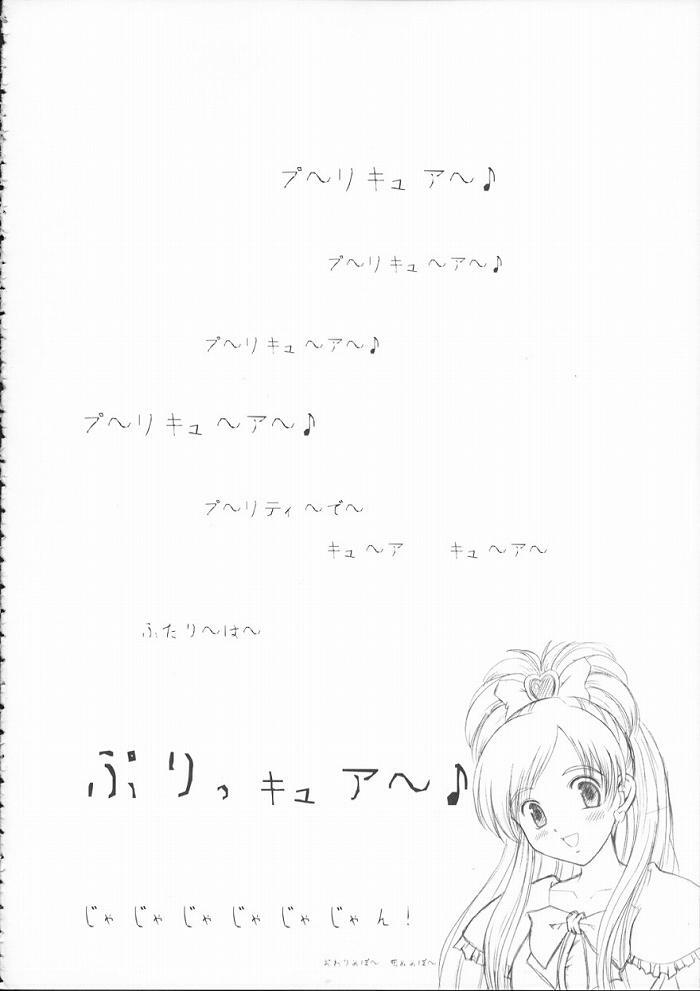 プ〜リキュア〜♪
プ〜リキュ〜ア〜♪
プ〜リキュ〜ア〜♪
プ〜リキュ〜ア〜♪
プ〜リティ〜で〜
キュ〜ア　キュ〜ア〜
ふたり〜は〜
ぷりっキュア〜♪
じゃじゃじゃじゃじゃじゃん！